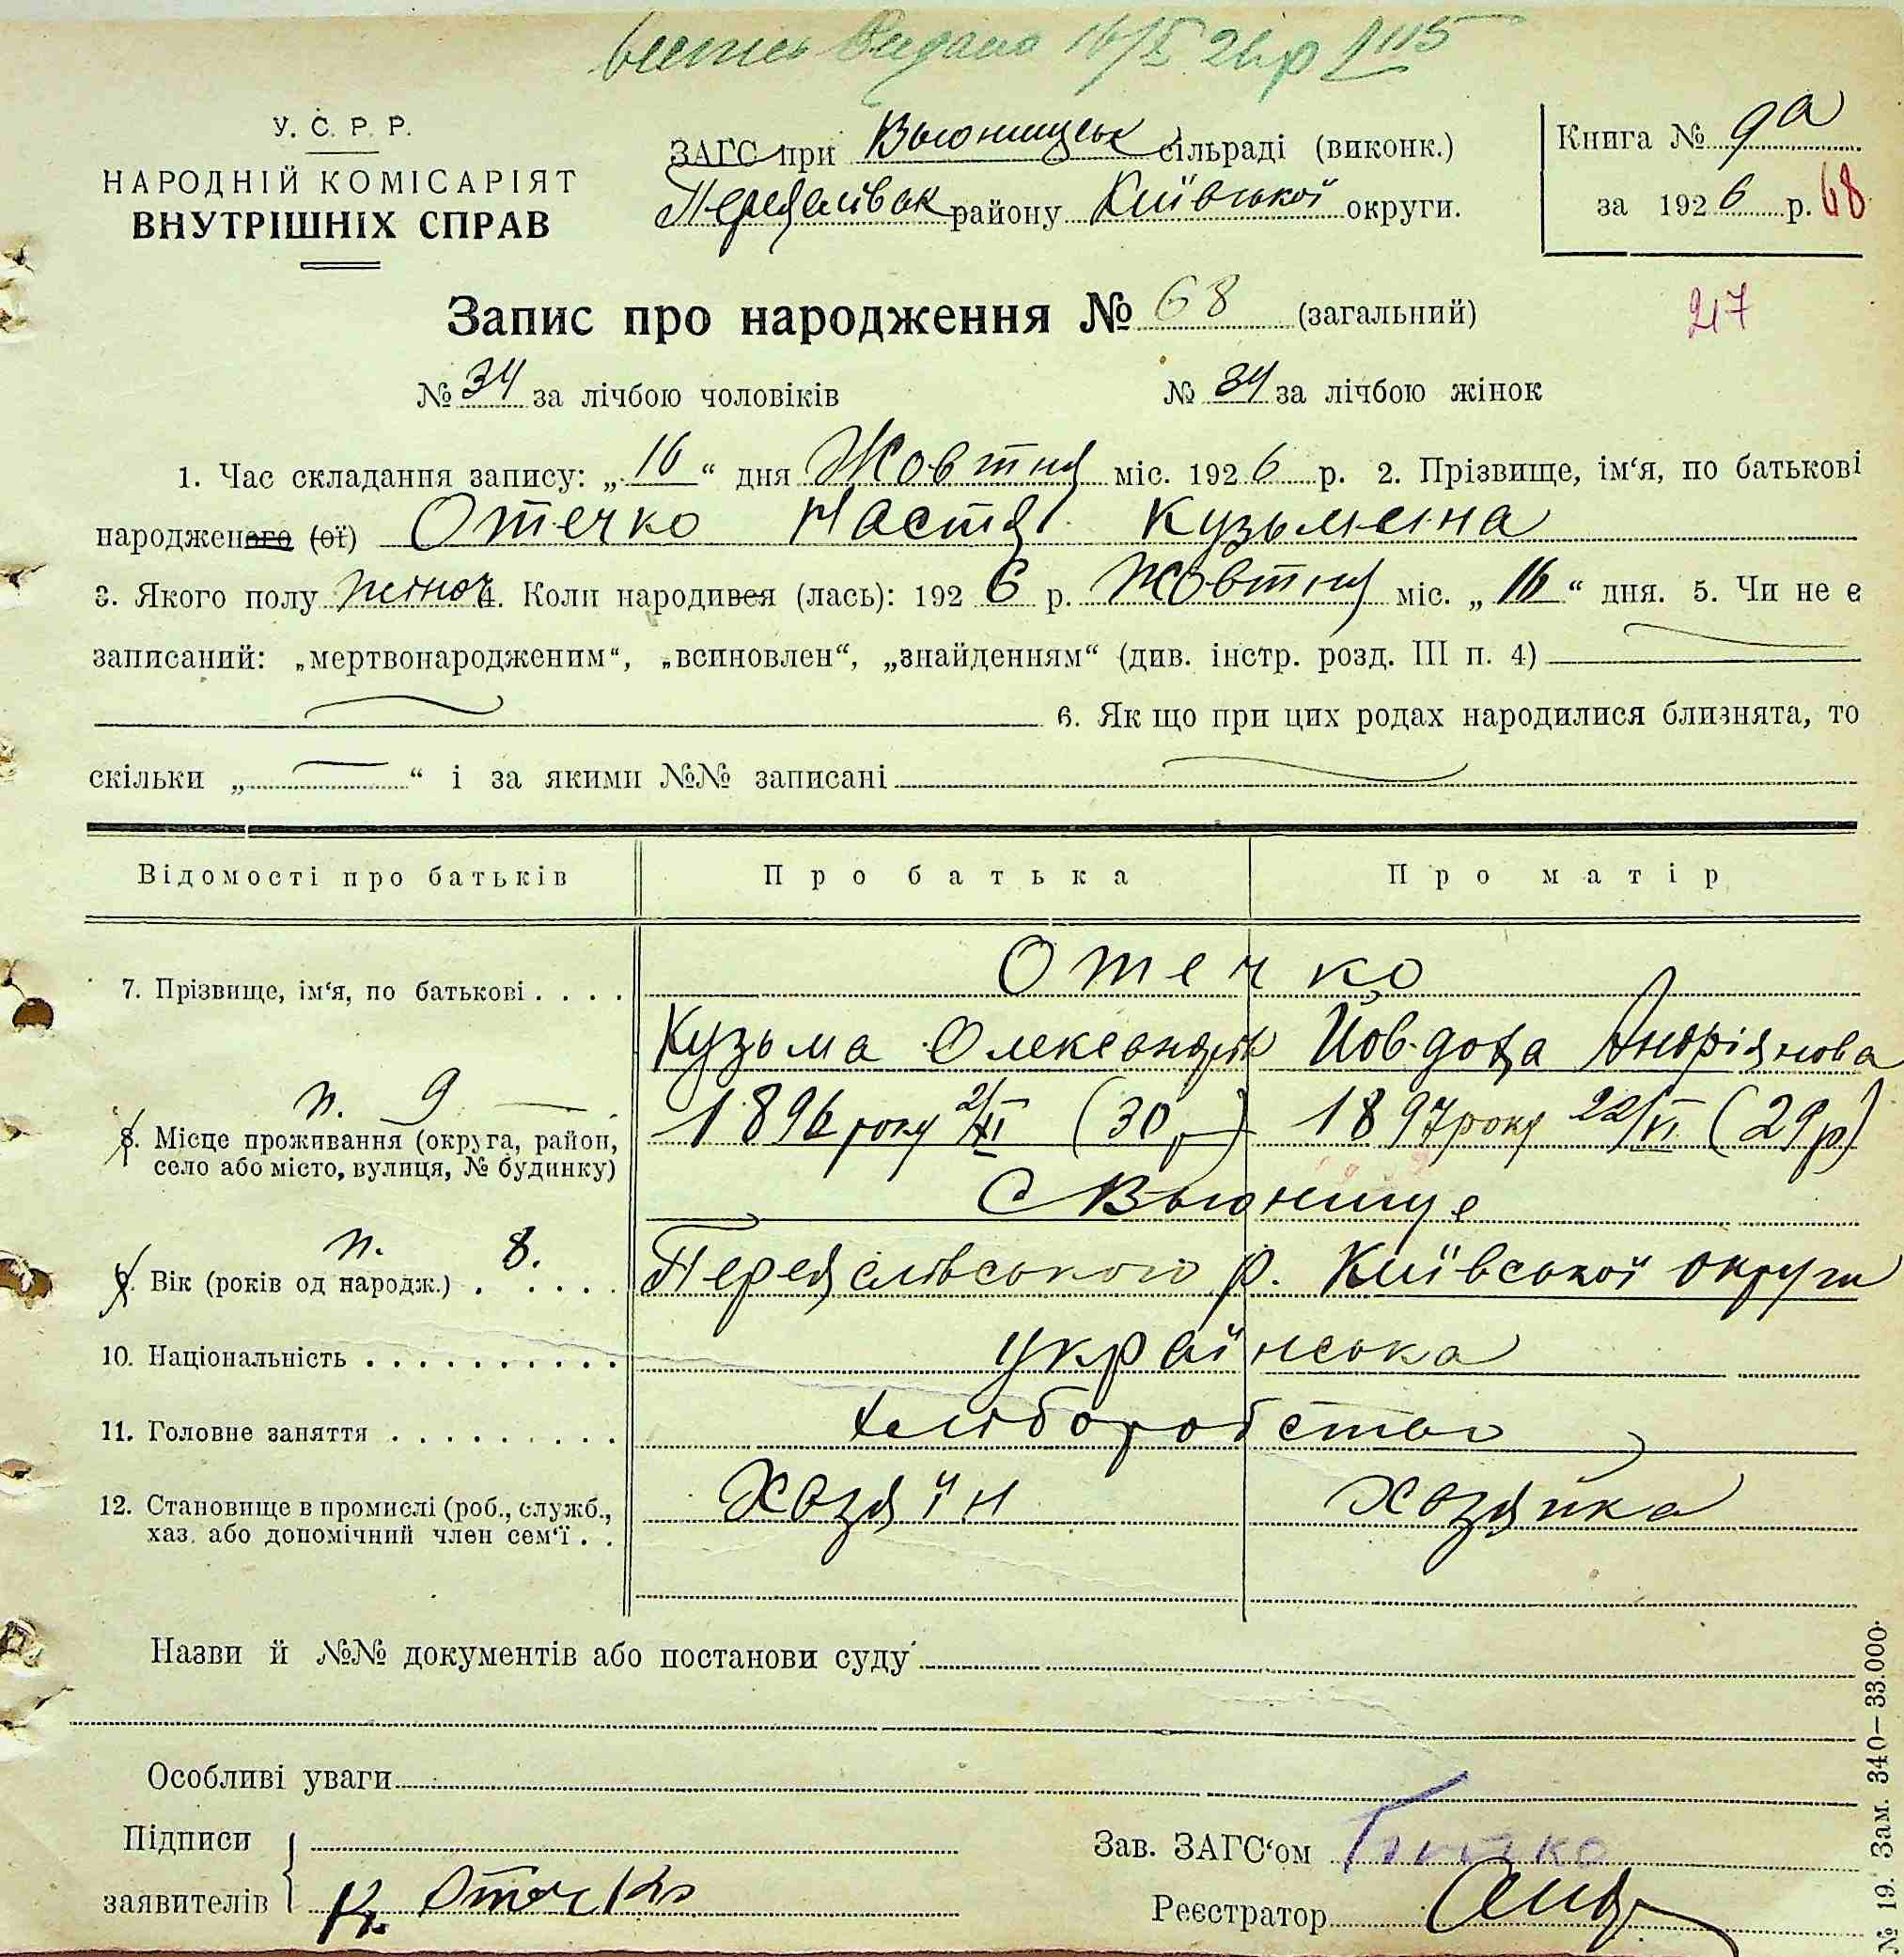 Видано 16/X 26 р
У. С. Р. Р.
НАРОДНІЙ КОМІСАРІЯТ
ВНУТРІШНІХ СПРАВ
ЗАГС при Вьюнищськ сільраді (виконк.)
Переяслівськ району Київської округи.
Книга № 9а
за 1926 р. 68
217
Запис про народження № 68 (загальний)
№ 34 за лічбою чоловіків № 34 за лічбою жінок
1. Час складання запису: „16“ дня Жовтня міс. 1926 р. 2. Прізвище, ім‘я, по батькові
народженого (ої) Отечко Настя Кузьмина
3. Якого полу жіноч 4. Коли народився (лась): 1926 р. Жовтня міс. „16“ дня. 5. Чи не є
записаний: „мертвонародженим“, „всиновлен“, „знайденням“ (див. інстр. розд. III п. 4)
6. Як що при цих родах народилися близнята, то
скільки „ “ і за якими №№ записані
Відомості про батьків Про батька Про матір
Отечко
7. Прізвище, ім‘я, по батькові
Кузьма Олександр Йовдоха Андріянова
п. 9
1896 року 2/XI (30 р) 1897 року 22/VI (29 р)
8. Місце проживання (округа, район,
село або місто, вулиця, № будинку)
С Вьюнище
п. 8.
9. Вік (років од народж.) Переяслівського р. Київської округи
10. Національність українська
11. Головне заняття хліборобство
12. Становище в промислі (роб., служб., Хозяїн Хозяйка
хаз. або допомічний член сем‘ї
Назви й №№ документів або постанови суду
Особливі уваги
Підписи
заявителів К. Отечко
Зав. ЗАГС‘ом
Реєстратор
№ 19. Зам. 340—33.000.